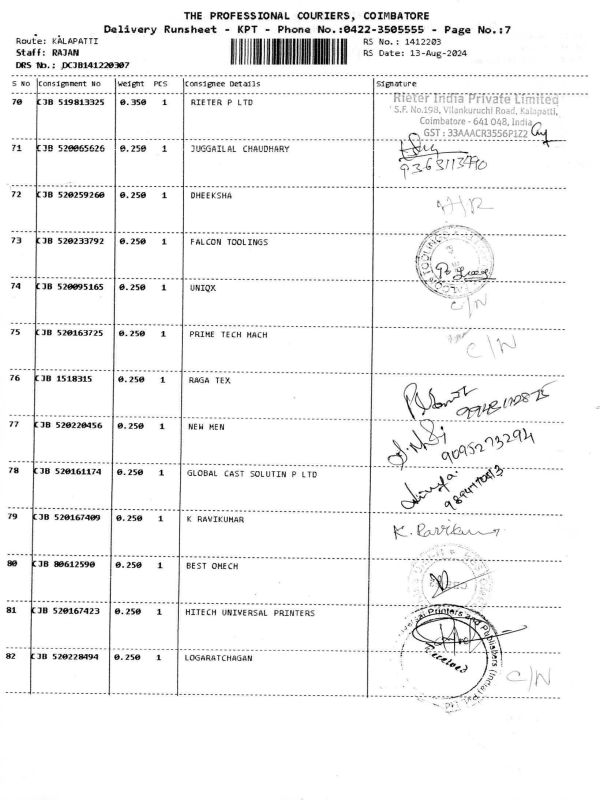 THE PROFESSIONAL COURIERS, COIMBATORE
Delivery Runsheet - KPT - Phone No.:0422-3505555 - Page No.:7
Route: KALAPATTI
Staff: RAJAN
DRS No.: DCJB141220307
RS No.: 1412203
RS Date: 13-Aug-2024
S No Consignment No Weight PCS Consignee Details Signature
70 CJB 519813325 0.350 1 RIETER P LTD
Rieter India Private Limited
S.F. No.198, Vilankuruchi Road, Kalapatti,
Coimbatore - 641 048, India
GST : 33AAACR3556P1Z2
71 CJB 520065626 0.250 1 JUGGAILAL CHAUDHARY
9363113490
72 CJB 520259260 0.250 1 DHEEKSHA
73 CJB 520233792 0.250 1 FALCON TOOLINGS
74 CJB 520095165 0.250 1 UNIQX
C/N
75 CJB 520163725 0.250 1 PRIME TECH MACH
C/N
76 CJB 1518315 0.250 1 RAGA TEX
77 CJB 520220456 0.250 1 NEW MEN
9095273294
78 CJB 520161174 0.250 1 GLOBAL CAST SOLUTIN P LTD
79 CJB 520167409 0.250 1 K RAVIKUMAR
K. Ravikumar
80 CJB 80612590 0.250 1 BEST OMECH
81 CJB 520167423 0.250 1 HITECH UNIVERSAL PRINTERS
Printers and Publishers (India) Pvt. Ltd.
Received
82 CJB 520228494 0.250 1 LOGARATCHAGAN
C/N